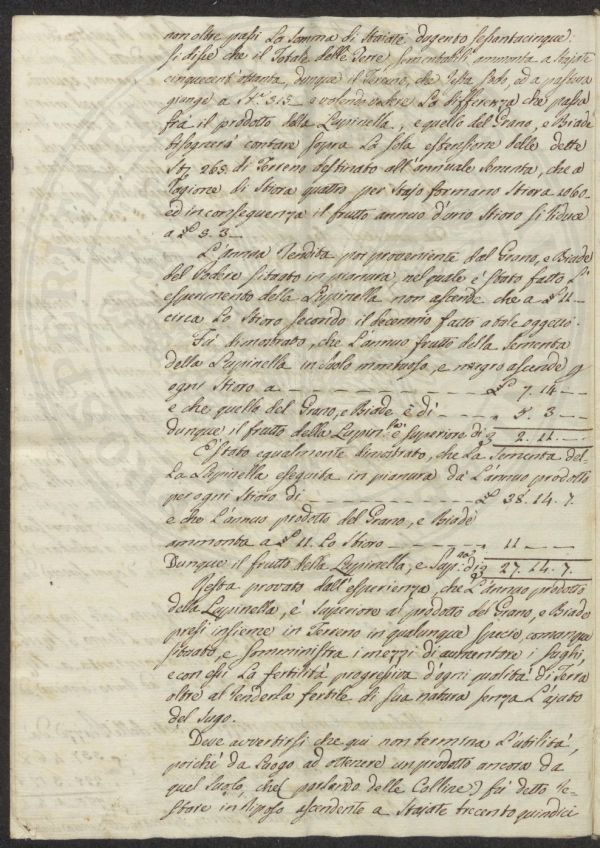 non oltre passi La Somma di Staiate dugento Sessantacinque:
si disse che il Totale delle Terre Sementabili, ammonta a Stajate
cinquecent'ottanta, dunque il Terreno, che resta Sodo, ed a pastura
giunge a St.ª 315 e volendo vedere La differenza che passa
frà il prodotto della Lupinella, e quello del Grano, e Biade
bisognerà contare sopra La Sola estensione delle dette
Stj 265 di Terreno destinato all'annuale Sementa, che a
ragione di Stiora quattro per Stajo formano Stiora 1060
ed in conseguenza il frutto annuo d'uno Stioro si riduce
a £ 5. 3 —
L'annua rendita poi proveniente dal Grano, e Biade
del Podere situato in pianura, nel quale è Stato fatto L'
esperimento della Lupinella non ascende che a £ 11 —
circa Lo Stioro secondo il decennio fatto a tale oggetto.
Fù dimostrato, che L'annuo frutto della Sementa
della Lupinella in Suolo montuoso, e magro ascende p
ogni Stioro a — £ 7. 14 —
e che quello del Grano, e Biade è di — 5. 3 —
dunque il frutto della Lupin.lla è Superiore di £ 2. 11. —
È Stato egualmente dimostrato, che La Sementa del-
La Lupinella eseguita in pianura dà L'annuo prodotto
per ogni Stioro di — £ 38. 14. 7.
e che L'annuo prodotto del Grano, e Biade
ammonta a £ 11. Lo Stioro — 11 —
Dunque il frutto della Lupinella, e Sup.re di £ 27. 14. 7.
Resta provato dall'esperienza, che L'annuo prodotto
della Lupinella, è Superiore al prodotto del Grano, e Biade
presi insieme in Terreno in qualunque Specie, comunque
situato, e Somministra i mezzi di aumentare i Sughi,
e con essi La fertilità progressiva d'ogni qualità di Terra
oltre al renderla fertile di sua natura senza L'ajuto
del Sugo.
Deve avvertirsi che qui non termina L'utilità,
poiché dà Luogo ad ottenere un prodotto ancora da
quel Suolo, che (parlando delle Colline) fù detto re-
stare in riposo ascendente a Staiate trecento quindici